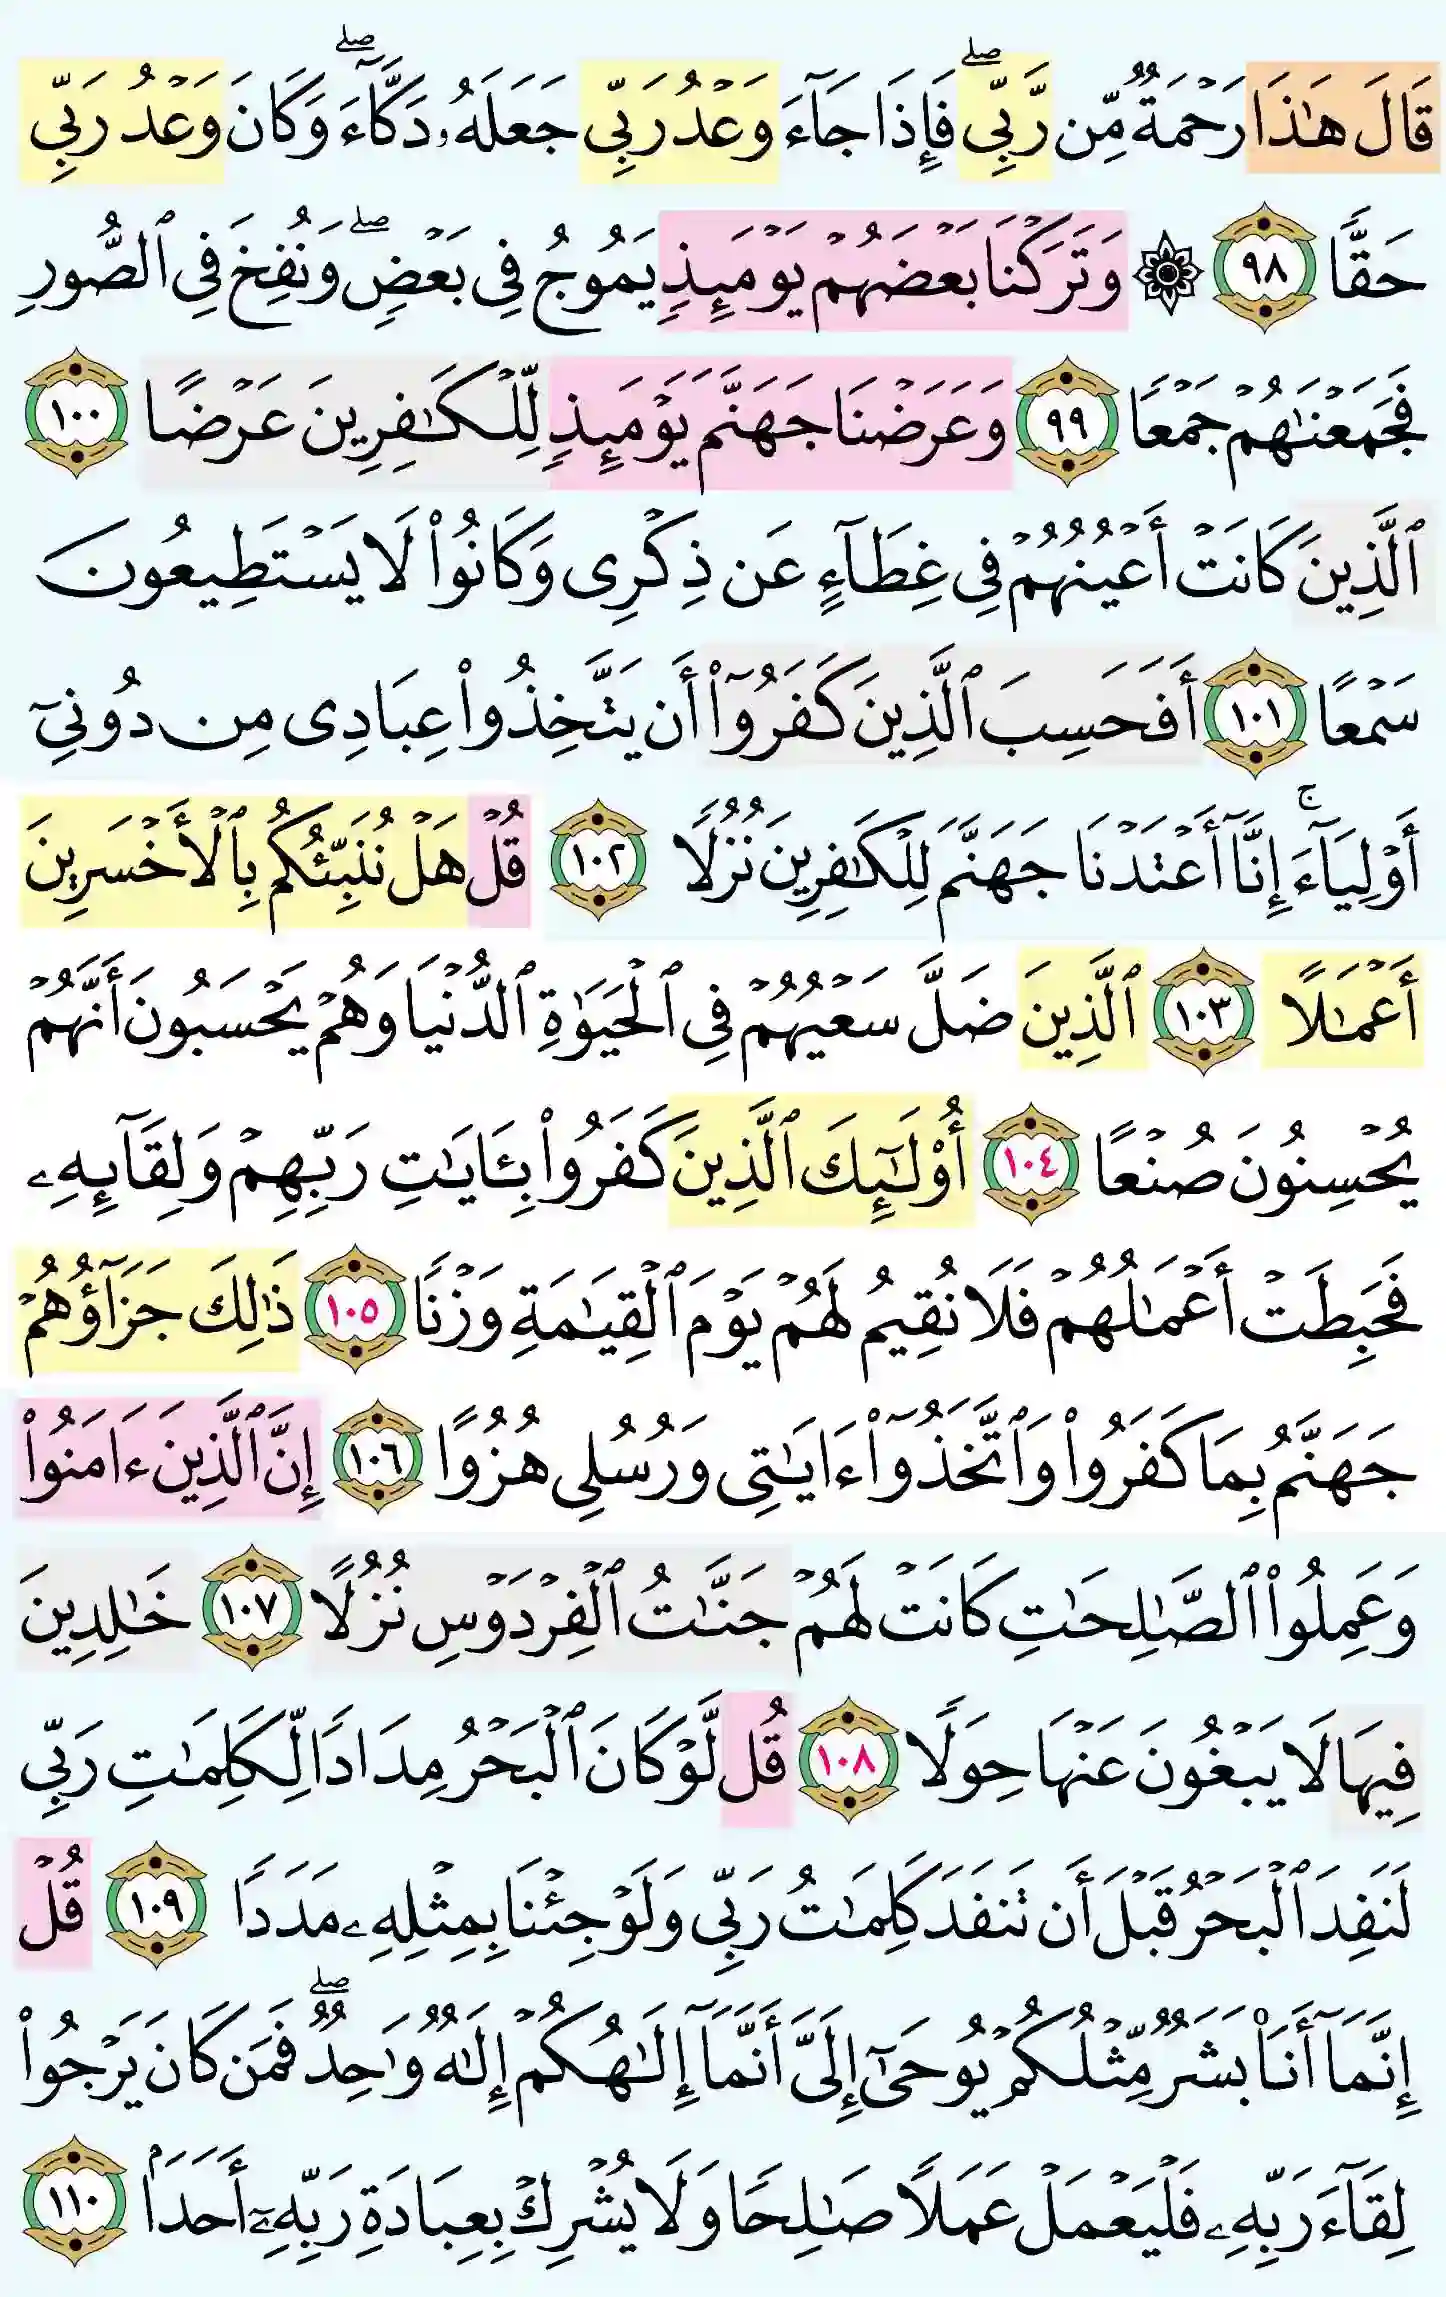 قَالَ هَٰذَا رَحْمَةٌ مِّن رَّبِّي ۖ فَإِذَا جَآءَ وَعْدُ رَبِّي جَعَلَهُۥ دَكَّآءَ ۖ وَكَانَ وَعْدُ رَبِّي
حَقًّا ٩٨ ۞ وَتَرَكْنَا بَعْضَهُمْ يَوْمَئِذٍ يَمُوجُ فِي بَعْضٍ ۖ وَنُفِخَ فِي ٱلصُّورِ
فَجَمَعْنَٰهُمْ جَمْعًا ٩٩ وَعَرَضْنَا جَهَنَّمَ يَوْمَئِذٍ لِّلْكَٰفِرِينَ عَرْضًا ١٠٠
ٱلَّذِينَ كَانَتْ أَعْيُنُهُمْ فِي غِطَآءٍ عَن ذِكْرِي وَكَانُوا۟ لَا يَسْتَطِيعُونَ
سَمْعًا ١٠١ أَفَحَسِبَ ٱلَّذِينَ كَفَرُوٓا۟ أَن يَتَّخِذُوا۟ عِبَادِي مِن دُونِيٓ
أَوْلِيَآءَ ۚ إِنَّآ أَعْتَدْنَا جَهَنَّمَ لِلْكَٰفِرِينَ نُزُلًا ١٠٢ قُلْ هَلْ نُنَبِّئُكُم بِٱلْأَخْسَرِينَ
أَعْمَٰلًا ١٠٣ ٱلَّذِينَ ضَلَّ سَعْيُهُمْ فِي ٱلْحَيَوٰةِ ٱلدُّنْيَا وَهُمْ يَحْسَبُونَ أَنَّهُمْ
يُحْسِنُونَ صُنْعًا ١٠٤ أُو۟لَٰٓئِكَ ٱلَّذِينَ كَفَرُوا۟ بِـَٔايَٰتِ رَبِّهِمْ وَلِقَآئِهِۦ
فَحَبِطَتْ أَعْمَٰلُهُمْ فَلَا نُقِيمُ لَهُمْ يَوْمَ ٱلْقِيَٰمَةِ وَزْنًا ١٠٥ ذَٰلِكَ جَزَآؤُهُمْ
جَهَنَّمُ بِمَا كَفَرُوا۟ وَٱتَّخَذُوٓا۟ ءَايَٰتِي وَرُسُلِي هُزُوًا ١٠٦ إِنَّ ٱلَّذِينَ ءَامَنُوا۟
وَعَمِلُوا۟ ٱلصَّٰلِحَٰتِ كَانَتْ لَهُمْ جَنَّٰتُ ٱلْفِرْدَوْسِ نُزُلًا ١٠٧ خَٰلِدِينَ
فِيهَا لَا يَبْغُونَ عَنْهَا حِوَلًا ١٠٨ قُل لَّوْ كَانَ ٱلْبَحْرُ مِدَادًا لِّكَلِمَٰتِ رَبِّي
لَنَفِدَ ٱلْبَحْرُ قَبْلَ أَن تَنفَدَ كَلِمَٰتُ رَبِّي وَلَوْ جِئْنَا بِمِثْلِهِۦ مَدَدًا ١٠٩ قُلْ
إِنَّمَآ أَنَا۠ بَشَرٌ مِّثْلُكُمْ يُوحَىٰٓ إِلَيَّ أَنَّمَآ إِلَٰهُكُمْ إِلَٰهٌ وَٰحِدٌ ۖ فَمَن كَانَ يَرْجُوا۟
لِقَآءَ رَبِّهِۦ فَلْيَعْمَلْ عَمَلًا صَٰلِحًا وَلَا يُشْرِكْ بِعِبَادَةِ رَبِّهِۦٓ أَحَدًۢا ١١٠